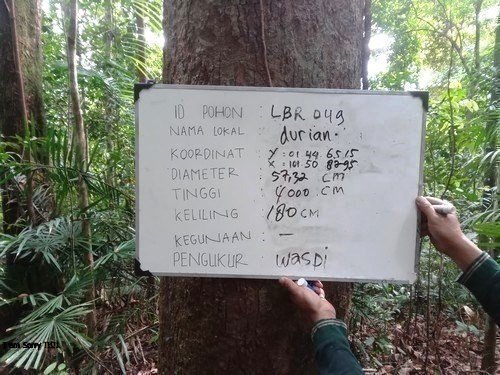 ID POHON : LBR 049
NAMA LOKAL : durian.
KOORDINAT : Y : 01 49 65 15
X = 101 50 82 95
DIAMETER : 57,32 CM
TINGGI : 4000 CM
KELILING : 180 CM
KEGUNAAN : –
PENGUKUR : WASDI